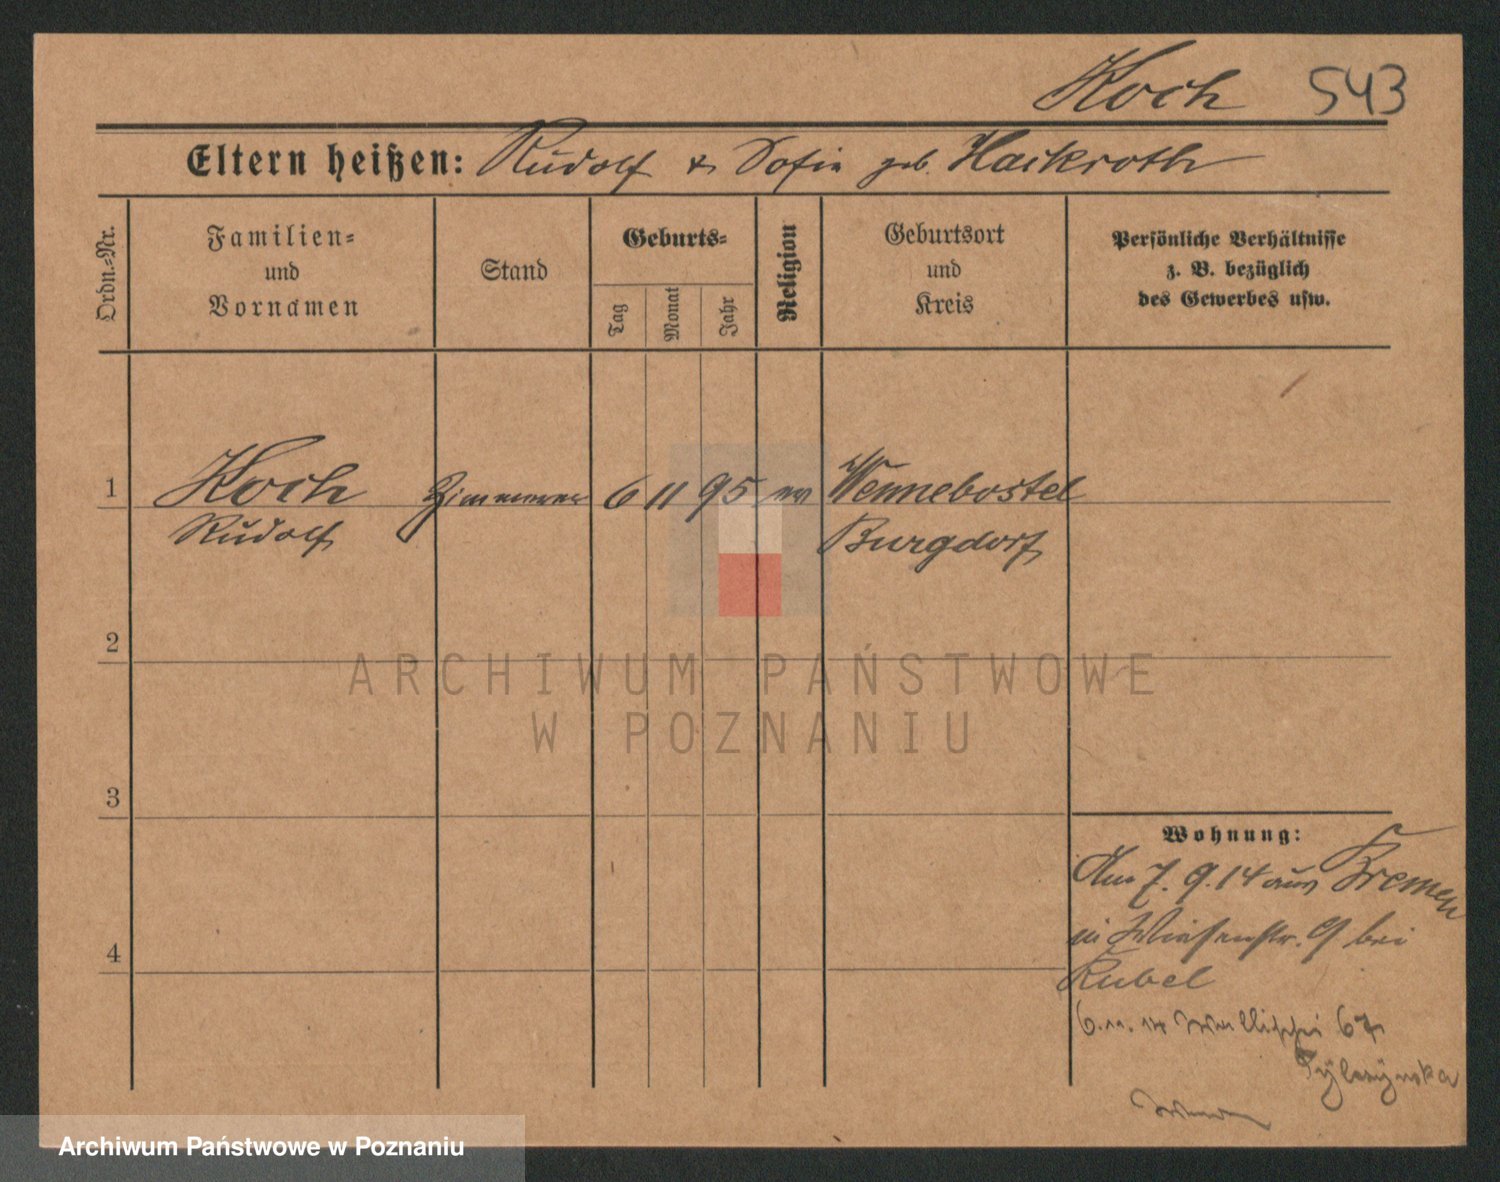 Koch 543
Eltern heißen: Rudolf & Sofie geb. Hackroth
Ordn.-Nr.
Familien-
und
Vornamen
Stand
Geburts-
Tag
Monat
Jahr
Religion
Geburtsort
und
Kreis
Persönliche Verhältnisse
z. B. bezüglich
des Gewerbes usw.
1 Koch Zimmerer 6 11 95 ev Wennebostel
Rudolf Burgdorf
2
3
4
Wohnung:
Am 7. 9. 14 aus Bremen
in Wiesenstr. 9 bei
Rubel
6. 11. 14 Wallischei 67
ARCHIWUM PAŃSTWOWE
W POZNANIU
Archiwum Państwowe w Poznaniu